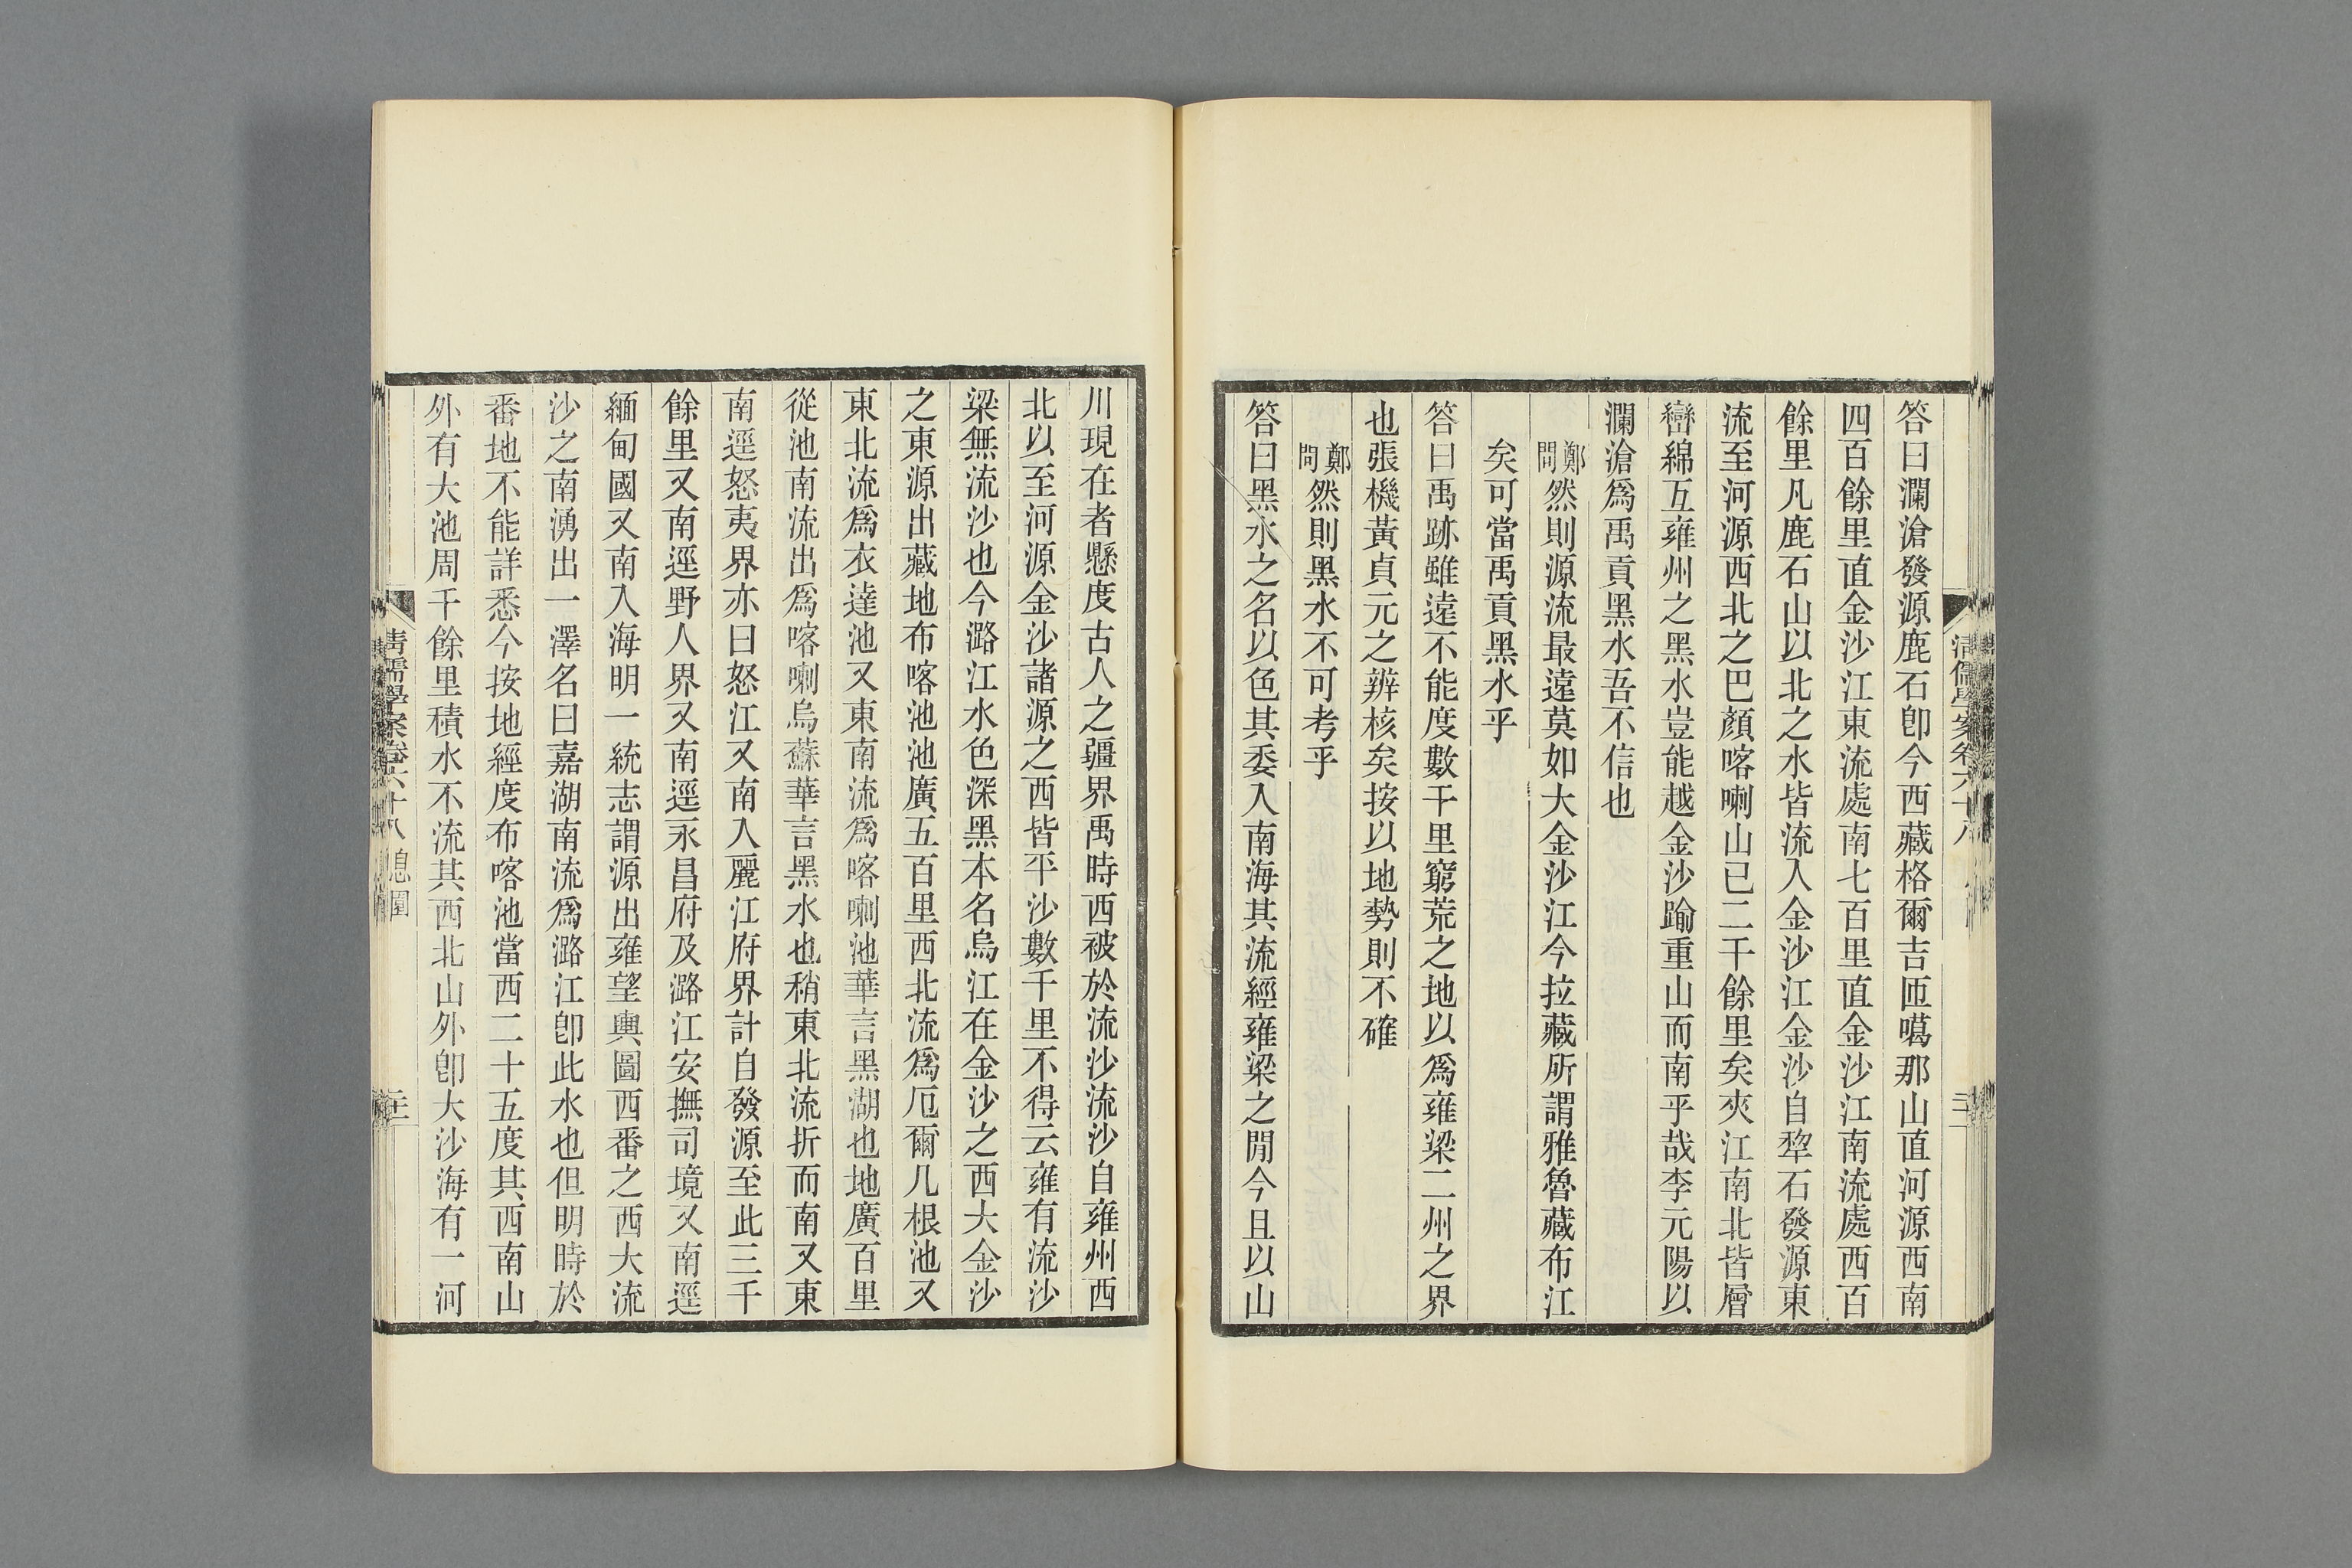 答曰瀾滄發源鹿石卽今西藏格爾吉匝噶那山直河源西南
四百餘里直金沙江東流處南七百里直金沙江南流處西百
餘里凡鹿石山以北之水皆流入金沙江金沙自犂石發源東
流至河源西北之巴顏喀喇山已二千餘里矣夾江南北皆層
巒綿互雍州之黑水豈能越金沙踰重山而南乎哉李元陽以
瀾滄爲禹貢黑水吾不信也
鄭問然則源流最遠莫如大金沙江今拉藏所謂雅魯藏布江
矣可當禹貢黑水乎
答曰禹跡雖遠不能度數千里窮荒之地以爲雍梁二州之界
也張機黃貞元之辨核矣按以地勢則不確
鄭問然則黑水不可考乎
答曰黑水之名以色其委入南海其流經雍梁之閒今且以山
川現在者懸度古人之疆界禹時西被於流沙流沙自雍州西
北以至河源金沙諸源之西皆平沙數千里不得云雍有流沙
梁無流沙也今潞江水色深黑本名烏江在金沙之西大金沙
之東源出藏地布喀池池廣五百里西北流爲厄爾几根池又
東北流爲衣達池又東南流爲喀喇池華言黑湖也地廣百里
從池南流出爲喀喇烏蘇華言黑水也稍東北流折而南又東
南逕怒夷界亦曰怒江又南入麗江府界計自發源至此三千
餘里又南逕野人界又南逕永昌府及潞江安撫司境又南逕
緬甸國又南入海明一統志謂源出雍望輿圖西番之西大流
沙之南湧出一澤名曰嘉湖南流爲潞江卽此水也但明時於
番地不能詳悉今按地經度布喀池當西二十五度其西南山
外有大池周千餘里積水不流其西北山外卽大沙海有一河
清儒學案卷六十八
清儒學案卷六十八 息園